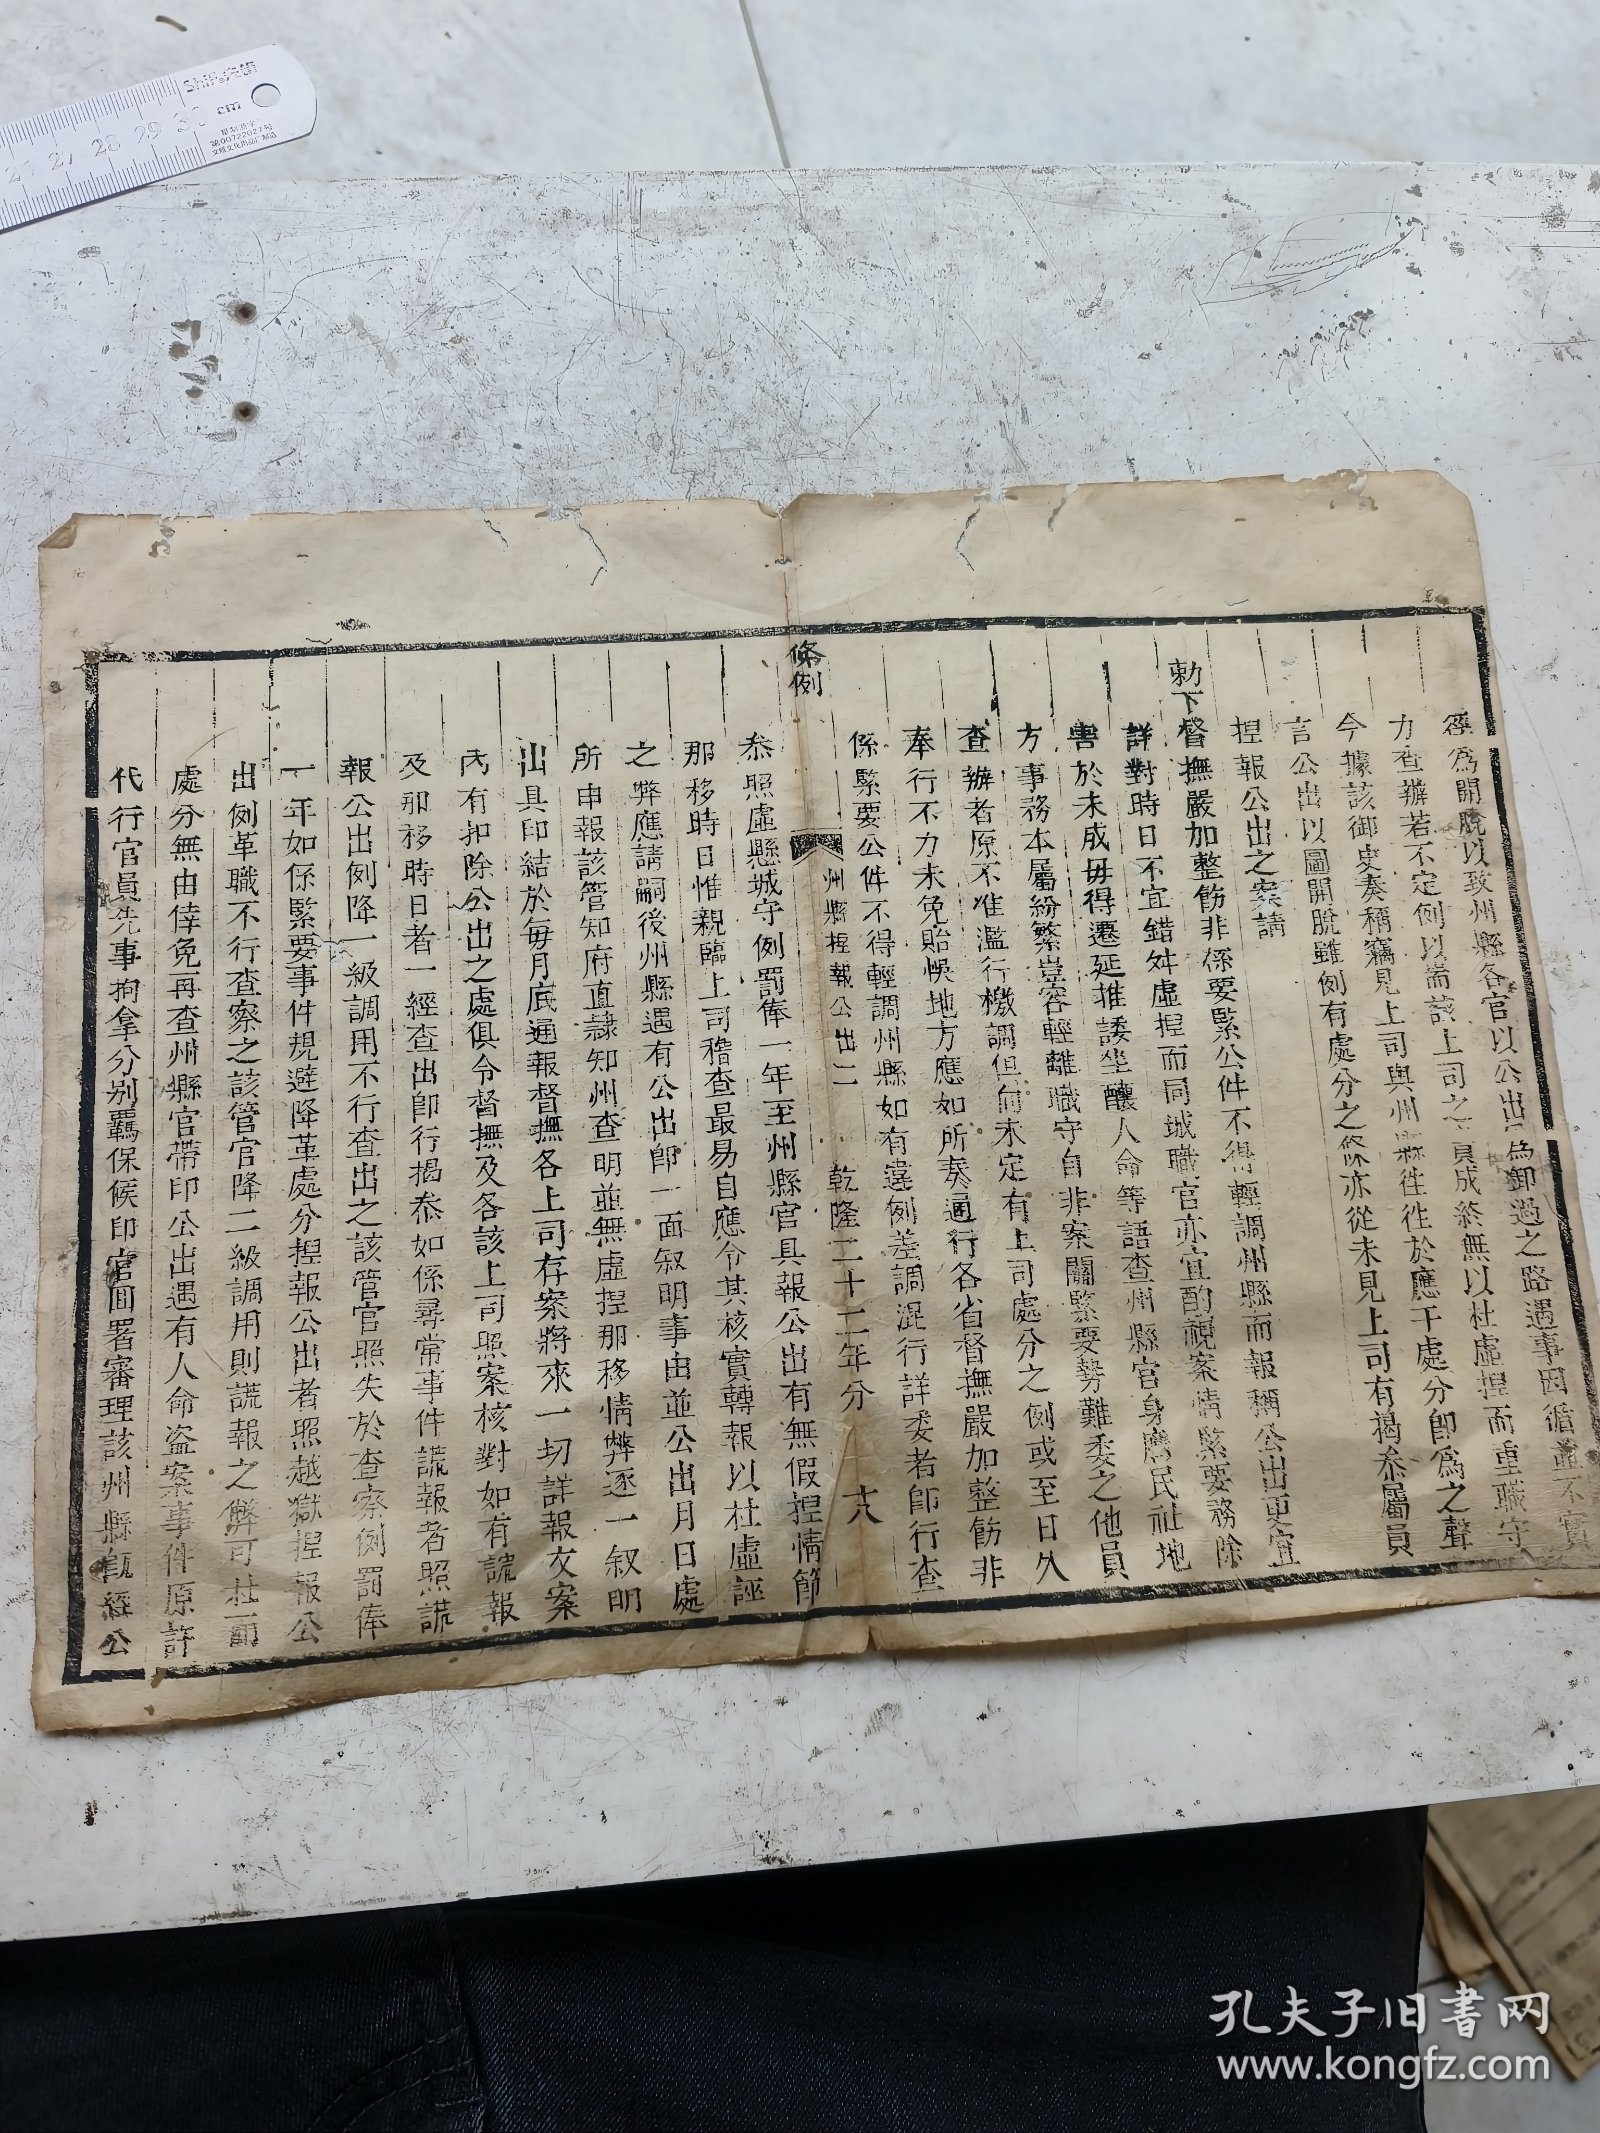 為開脫以致州縣各官以公出為卸過之路遇事因循並不實
力查辦若不定例以耑該上司之責成終無以杜虛捏而重職守
今據該御史奏稱竊見上司與州縣徃徃於應干處分卽為之聲
言公出以圖開脫雖例有處分之條亦從未見上司有揭叅屬員
捏報公出之案請
勅下督撫嚴加整飭非係要緊公件不得輕調州縣而報稱公出更宜
詳對時日不宜錯舛虛捏而同城職官亦宜酌視案情緊要務除
害於未成毋得遷延推諉坐釀人命等語查州縣官身膺民社地
方事務本屬紛繁豈容輕離職守自非案關緊要勢難委之他員
查辦者原不准濫行檄調但向未定有上司處分之例或至日久
奉行不力未免貽悞地方應如所奏通行各省督撫嚴加整飭非
係緊要公件不得輕調州縣如有違例差調混行詳委者卽行查
條例
州縣捏報公出二
乾隆二十二年分
叅照虛懸城守例罰俸一年至州縣官具報公出有無假捏情節
那移時日惟親臨上司稽查最易自應令其核實轉報以杜虛誣
之弊應請嗣後州縣遇有公出卽一面叙明事由並公出月日處
所申報該管知府直隸知州查明並無虛捏那移情弊逐一叙明
出具印結於每月底通報督撫各上司存案將來一切詳報文案
內有扣除公出之處俱令督撫及各該上司照案核對如有謊報
及那移時日者一經查出卽行揭叅如係尋常事件謊報者照謊
報公出例降一級調用不行查出之該管官照失於查察例罰俸
一年如係緊要事件規避降革處分捏報公出者照越獄捏報公
出例革職不行查察之該管官降二級調用則謊報之弊可杜而
處分無由倖免再查州縣官帶印公出遇有人命盜案事件原許
代行官員先事拘拿分别羈保候印官回署審理該州縣旣經公
cm
孔夫子旧书网
www.kongfz.com